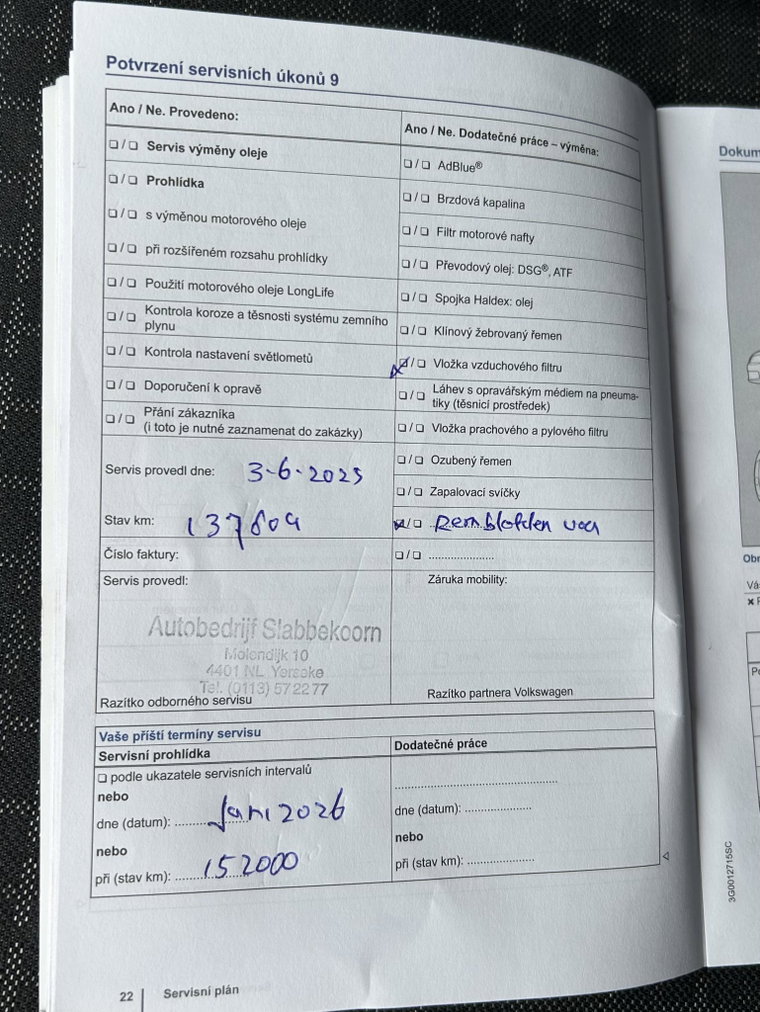 Potvrzení servisních úkonů 9
Ano / Ne. Provedeno:
❏ / ❏ Servis výměny oleje
❏ / ❏ Prohlídka
❏ / ❏ s výměnou motorového oleje
❏ / ❏ při rozšířeném rozsahu prohlídky
❏ / ❏ Použití motorového oleje LongLife
❏ / ❏ Kontrola koroze a těsnosti systému zemního
plynu
❏ / ❏ Kontrola nastavení světlometů
❏ / ❏ Doporučení k opravě
❏ / ❏ Přání zákazníka
(i toto je nutné zaznamenat do zakázky)
Servis provedl dne: 3-6-2025
Stav km: 137809
Číslo faktury:
Servis provedl:
Autobedrijf Slabbekoorn
Molendijk 10
4401 NL Yerseke
Tel. (0113) 572277
Razítko odborného servisu
Ano / Ne. Dodatečné práce – výměna:
❏ / ❏ AdBlue®
❏ / ❏ Brzdová kapalina
❏ / ❏ Filtr motorové nafty
❏ / ❏ Převodový olej: DSG®, ATF
❏ / ❏ Spojka Haldex: olej
❏ / ❏ Klínový žebrovaný řemen
❏ / ❏ Vložka vzduchového filtru
❏ / ❏ Láhev s opravářským médiem na pneuma-
tiky (těsnicí prostředek)
❏ / ❏ Vložka prachového a pylového filtru
❏ / ❏ Ozubený řemen
❏ / ❏ Zapalovací svíčky
❏ / ❏ Remblokken voor
❏ / ❏ .....................
Záruka mobility:
Razítko partnera Volkswagen
Vaše příští termíny servisu
Servisní prohlídka
❏ podle ukazatele servisních intervalů
nebo
dne (datum): Juni 2026
nebo
při (stav km): 152000
Dodatečné práce
dne (datum): .....................
nebo
při (stav km): .....................
22 Servisní plán
Dokum
Obr
Vá
3G0012715SC